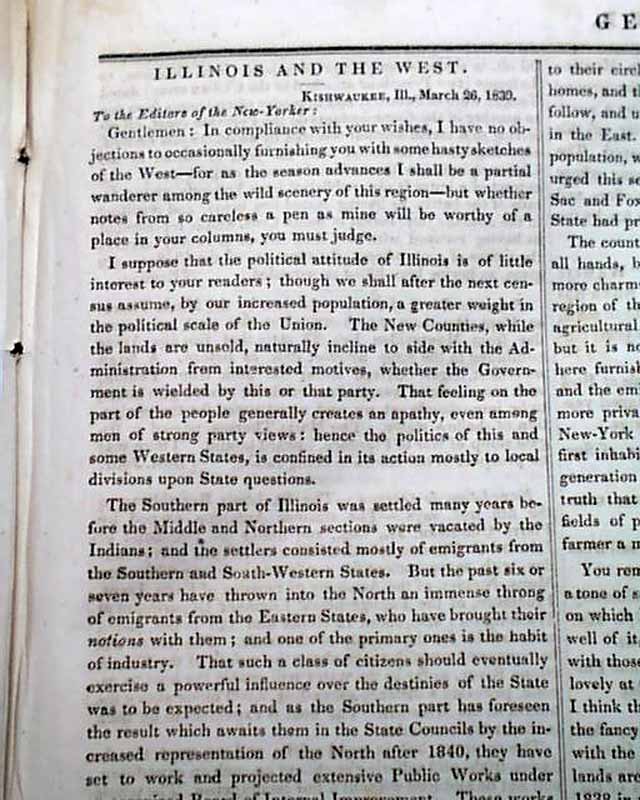 GE
ILLINOIS AND THE WEST.
KISHWAUKEE, Ill., March 26, 1839.
To the Editors of the New-Yorker:
Gentlemen: In compliance with your wishes, I have no ob-
jections to occasionally furnishing you with some hasty sketches
of the West—for as the season advances I shall be a partial
wanderer among the wild scenery of this region—but whether
notes from so careless a pen as mine will be worthy of a
place in your columns, you must judge.
I suppose that the political attitude of Illinois is of little
interest to your readers; though we shall after the next cen-
sus assume, by our increased population, a greater weight in
the political scale of the Union. The New Counties, while
the lands are unsold, naturally incline to side with the Ad-
ministration from interested motives, whether the Govern-
ment is wielded by this or that party. That feeling on the
part of the people generally creates an apathy, even among
men of strong party views: hence the politics of this and
some Western States, is confined in its action mostly to local
divisions upon State questions.
The Southern part of Illinois was settled many years be-
fore the Middle and Northern sections were vacated by the
Indians; and the settlers consisted mostly of emigrants from
the Southern and South-Western States. But the past six or
seven years have thrown into the North an immense throng
of emigrants from the Eastern States, who have brought their
notions with them; and one of the primary ones is the habit
of industry. That such a class of citizens should eventually
exercise a powerful influence over the destinies of the State
was to be expected; and as the Southern part has foreseen
the result which awaits them in the State Councils by the in-
creased representation of the North after 1840, they have
set to work and projected extensive Public Works under
Board of Internal Improvement. These works
to their circl
homes, and th
follow, and u
in the East.
population, w
urged this se
Sac and Fox
State had pr
The count
all hands, b
more charm
region of th
agricultural
but it is no
here furnish
and the em
more priva
New-York
first inhabi
generation
truth that
fields of p
farmer a m
You rem
a tone of s
on which
well of it,
with those
lovely at
I think th
the fancy
with the
lands are
1838 in